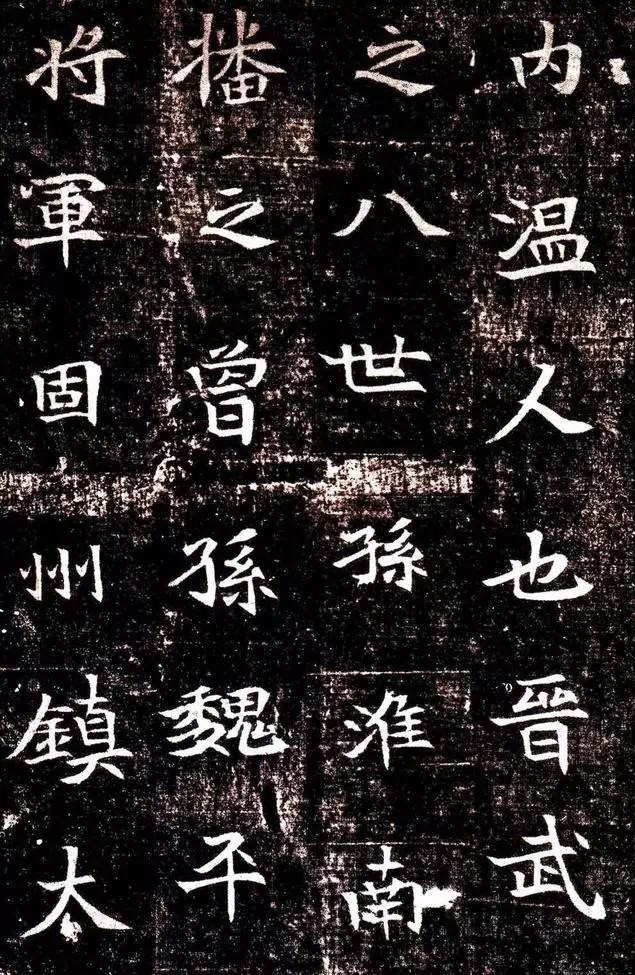 内温人也晉武
之八世孫淮南
播之曾孫魏平
將軍固州鎮太